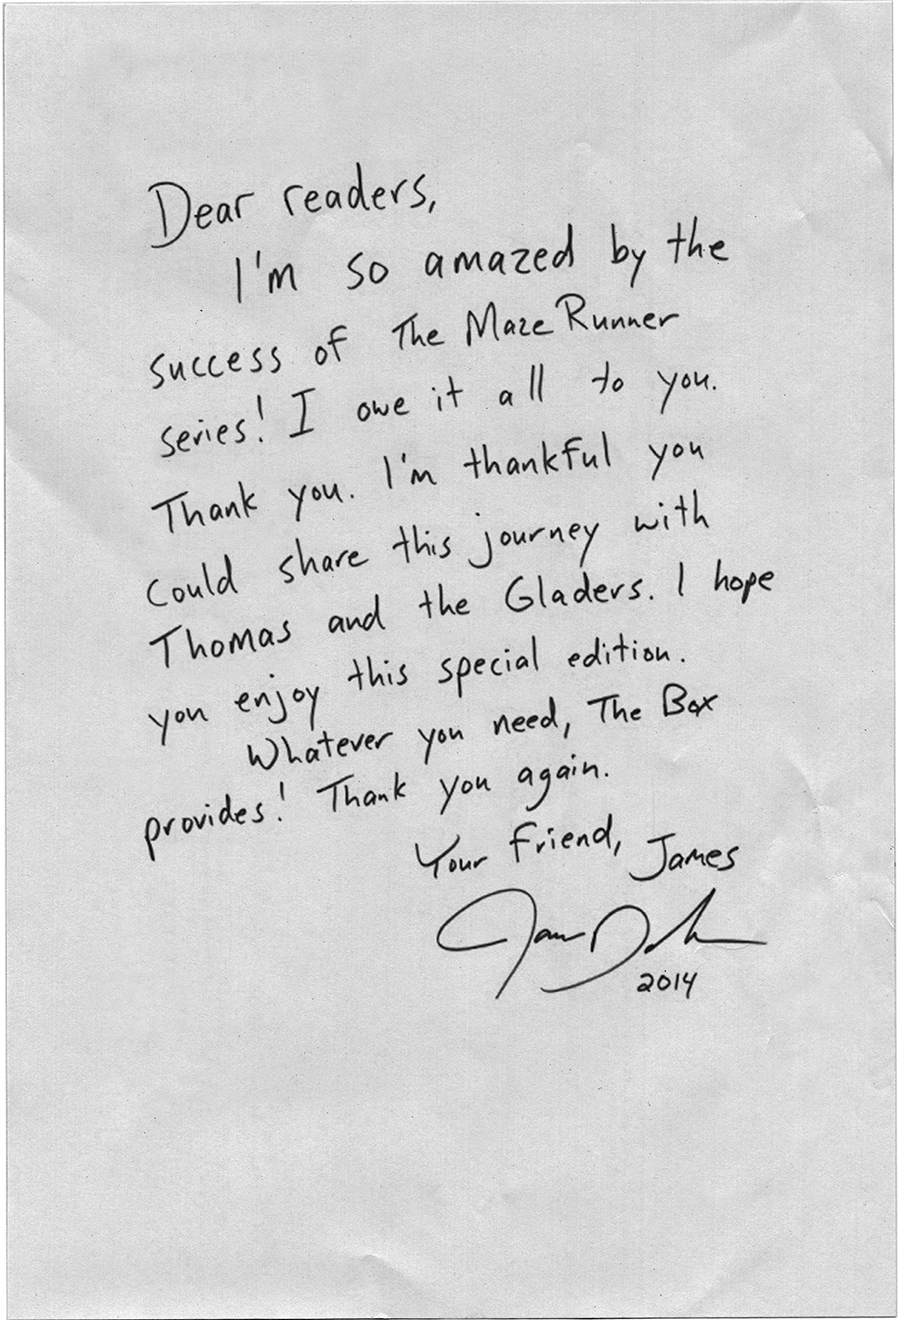 Dear readers,
I'm so amazed by the
success of The Maze Runner
series! I owe it all to you.
Thank you. I'm thankful you
could share this journey with
Thomas and the Gladers. I hope
you enjoy this special edition.
Whatever you need, The Box
provides! Thank you again.
Your friend, James
James Dashner
2014